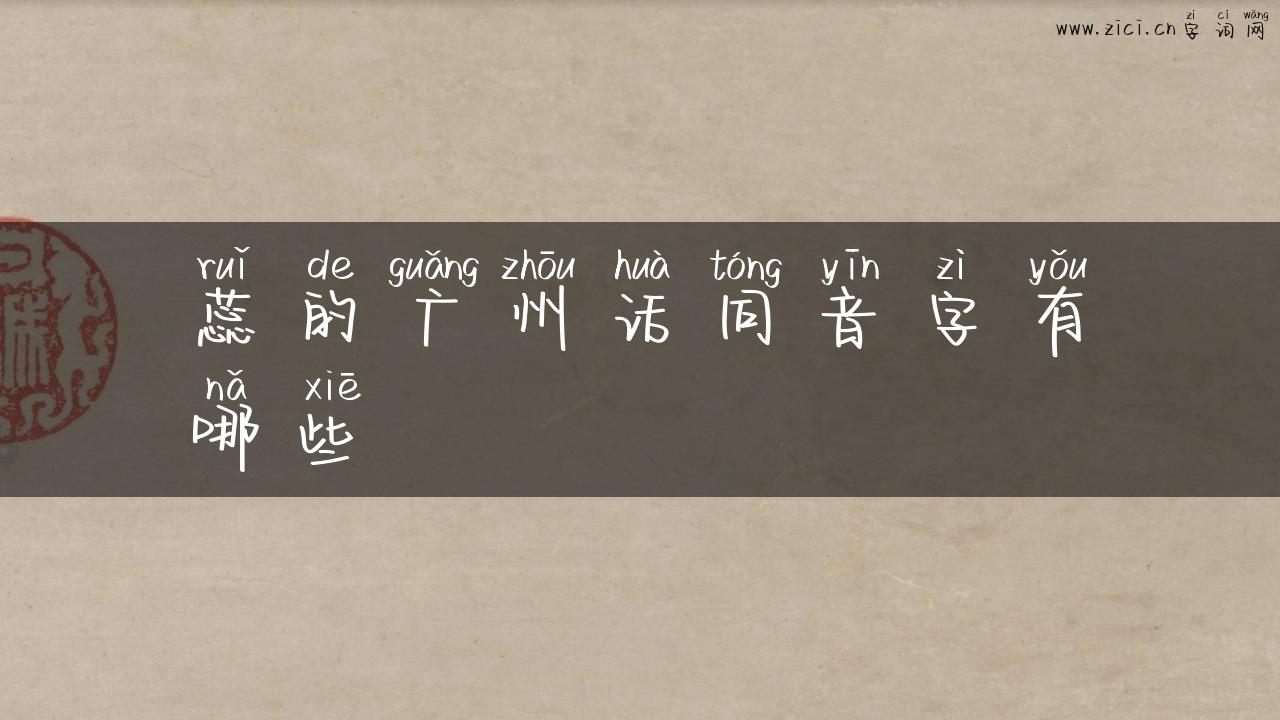 zì cí wǎng
www.zici.cn 字词网
ruǐ de guǎng zhōu huà tóng yīn zì yǒu
蕊的广州话同音字有
nǎ xiē
哪些